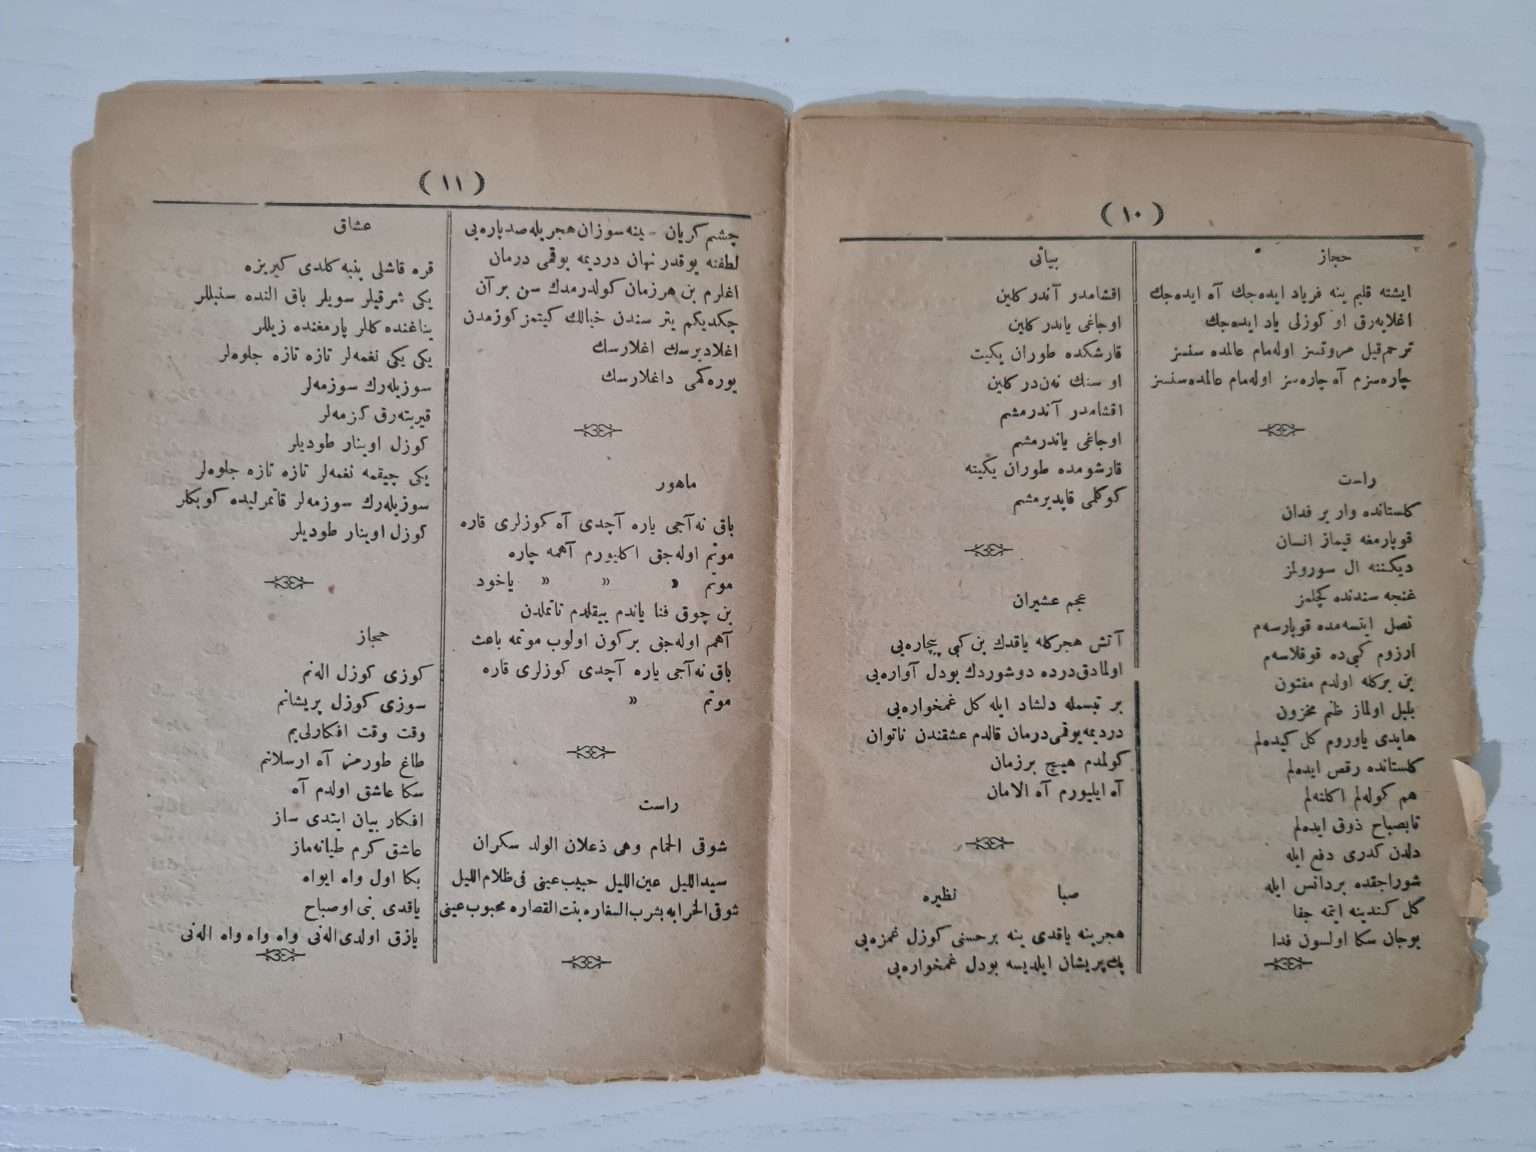 ( ١٠ )
حجاز
ایشته قلبم ینه فریاد ایده‌جك آه ایده‌جك
اغلایه‌رق او كوزلی یاد ایده‌جك
ترحم قیل مروتسز اوله‌مام عالمده سنسز
چاره‌سزم آه چاره‌سز اوله‌مام عالمده سنسز
راست
كلستانده وار بر فدان
قوپارمغه قیماز انسان
دیكننه ال سورولمز
غنجه سندنده كچلمز
نصل ایتسه‌مده قوپارسه‌م
ارزوم كبی ده قوقلاسه‌م
بن بركله اولدم مفتون
بلبل اولماز ظنم محزون
هایدی یاوروم كل كیده‌لم
كلستانده رقص ایده‌لم
هم كوله‌لم اكلنه‌لم
تابصباح ذوق ایده‌لم
دلدن كدری دفع ایله
شوراجقده بردانس ایله
گل كندینه ایتمه جفا
بوجان سكا اولسون فدا
بیاتی
اقشامدر آندر كلین
اوجاغی یاندر كلین
قارشكده طوران یكیت
او سنك نه‌ن در كلین
اقشامدر آندرمشم
اوجاغی یاندرمشم
قارشومده طوران یكینه
كوكلمی قاپدیرمشم
عجم عشیران
آتش هجركله یاقدك بن كبی بیچاره‌یی
اولمادق درده دوشوردك بودل آواره‌یی
بر تبسمله دلشاد ایله كل غمخواره‌یی
دردیمه یوقمی درمان قالدم عشقندن ناتوان
كولمدم هیچ برزمان
آه ایلیورم آه الامان
صبا نظیره
هجرینه یاقدی ینه برحسنی كوزل غمزه‌یی
پك پریشان ایلدیسه بودل غمخواره‌یی
( ١١ )
چشم كریان - ینه سوزان هجریله صدپاره‌یی
لطفنه یوقدر نهان دردیمه یوقمی درمان
اغلرم بن هرزمان كولدرمدك سن بر آن
چكدیكم یتر سندن خیالك كیتمز كوزمدن
اغلادیرسك اغلارسك
یوره‌كمی داغلارسك
ماهور
باق نه آجی یاره آچدی آه كوزلری قاره
موتم اوله‌جق اكلیورم آهمه چاره
موتم » » » یاخود
بن چوق فنا یاندم ییقلدم تاتملدن
آهم اوله‌جق بركون اولوب موتمه باعث
باق نه آجی یاره آچدی كوزلری قاره
موتم »
راست
شوقی الحمام وهی ذعلان الولد سكران
سیداللیل عین اللیل حبیب عینی فی ظلام اللیل
شوقی الخرابه بشرب السغاره بنت القصاره محبوب عینی
عشاق
قره قاشلی پنبه كلدی كیریزه
یكی شرقیلر سویلر باق النده سنبللر
یناغنده كللر پارمغنده زیللر
یكی یكی نغمه‌لر تازه تازه جلوه‌لر
سوزیله‌رك سوزمه‌لر
قیریته‌رق كزمه‌لر
كوزل اوینار طودیلر
یكی چیقمه نغمه‌لر تازه تازه جلوه‌لر
سوزیله‌رك سوزمه‌لر قاتمرلیده كوبكلر
كوزل اوینار طودیلر
حجاز
كوزی كوزل اله‌نم
سوزی كوزل پریشانم
وقت وقت افكارلی‌یم
طاغ طورمز آه ارسلانم
سكا عاشق اولدم آه
افكار بیان ایتدی ساز
عاشق كرم طیانه‌ماز
بكا اول واه ایواه
یاقدی بنی اوصباح
یازق اولدی اله‌نی واه واه واه اله‌نی